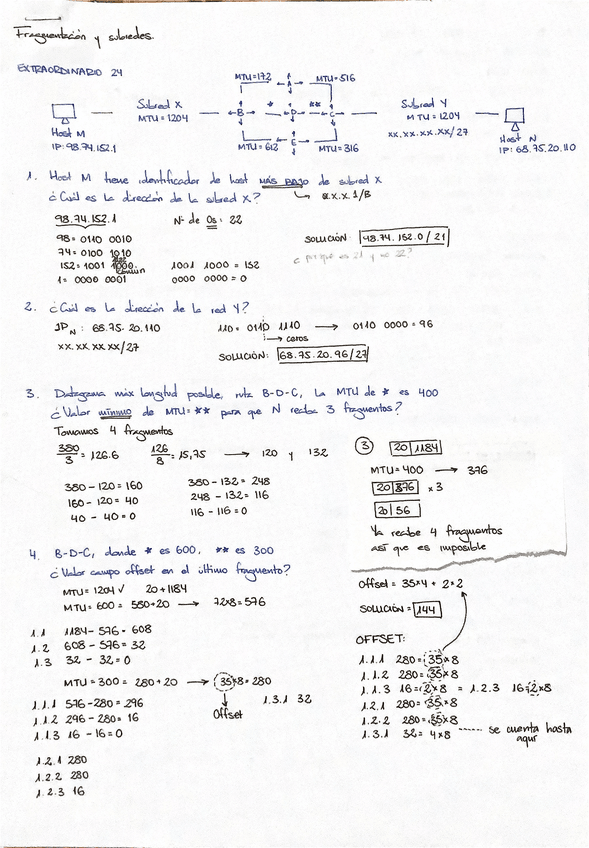 Fragmentación y subredes.
EXTRAORDINARIO 24
MTU=172 A MTU=516
Subred X
MTU = 1204
B * D ** C
Subred Y
MTU = 1204
xx.xx.xx.xx/27
Host M
IP: 98.74.152.1
MTU=612 E MTU=316
Host N
IP: 68.75.20.110
1. Host M tiene identificador de host MÁS BAJO de subred X
¿Cuál es la dirección de la subred X? x.x.x.1/B
98.74.152.1 Nº de 0s: 22
98 = 0110 0010
74 = 0100 1010
152 = 1001 1000 1001 1000 = 152
1 = 0000 0001 0000 0000 = 0
SOLUCIÓN: 98.74.152.0/21
¿por qué es 21 y no 22?
2. ¿Cuál es la dirección de la red Y?
IP N : 68.75.20.110 110 = 0110 1110 → 0110 0000 = 96
xx.xx.xx.xx/27 → ceros
SOLUCIÓN: 68.75.20.96/27
3. Datagrama máx longitud posible, ruta B-D-C, la MTU de * es 400
¿Valor mínimo de MTU=** para que N reciba 3 fragmentos?
Tomamos 4 fragmentos
380/3 = 126.6 126/8 = 15,75 → 120 y 132
380-120=160 380-132=248
160-120=40 248-132=116
40-40=0 116-116=0
3 20|1184
MTU=400 → 376
20|376 x3
20|56
Ya recibe 4 fragmentos
así que es imposible
4. B-D-C, donde * es 600, ** es 300
¿Valor campo offset en el último fragmento?
MTU=1204 ✓ 20+1184
MTU=600 = 580+20 → 72x8=576
1.1 1184-576=608
1.2 608-576=32
1.3 32-32=0
MTU=300 = 280+20 → 35x8=280
Offset
1.1.1 576-280=296 1.3.1 32
1.1.2 296-280=16
1.1.3 16-16=0
1.2.1 280
1.2.2 280
1.2.3 16
Offset = 35x4 + 2x2
SOLUCIÓN = 144
OFFSET:
1.1.1 280=35x8
1.1.2 280=35x8
1.1.3 16=2x8 = 1.2.3 16=2x8
1.2.1 280=35x8
1.2.2 280=35x8
1.3.1 32=4x8 ----- se cuenta hasta
aquí